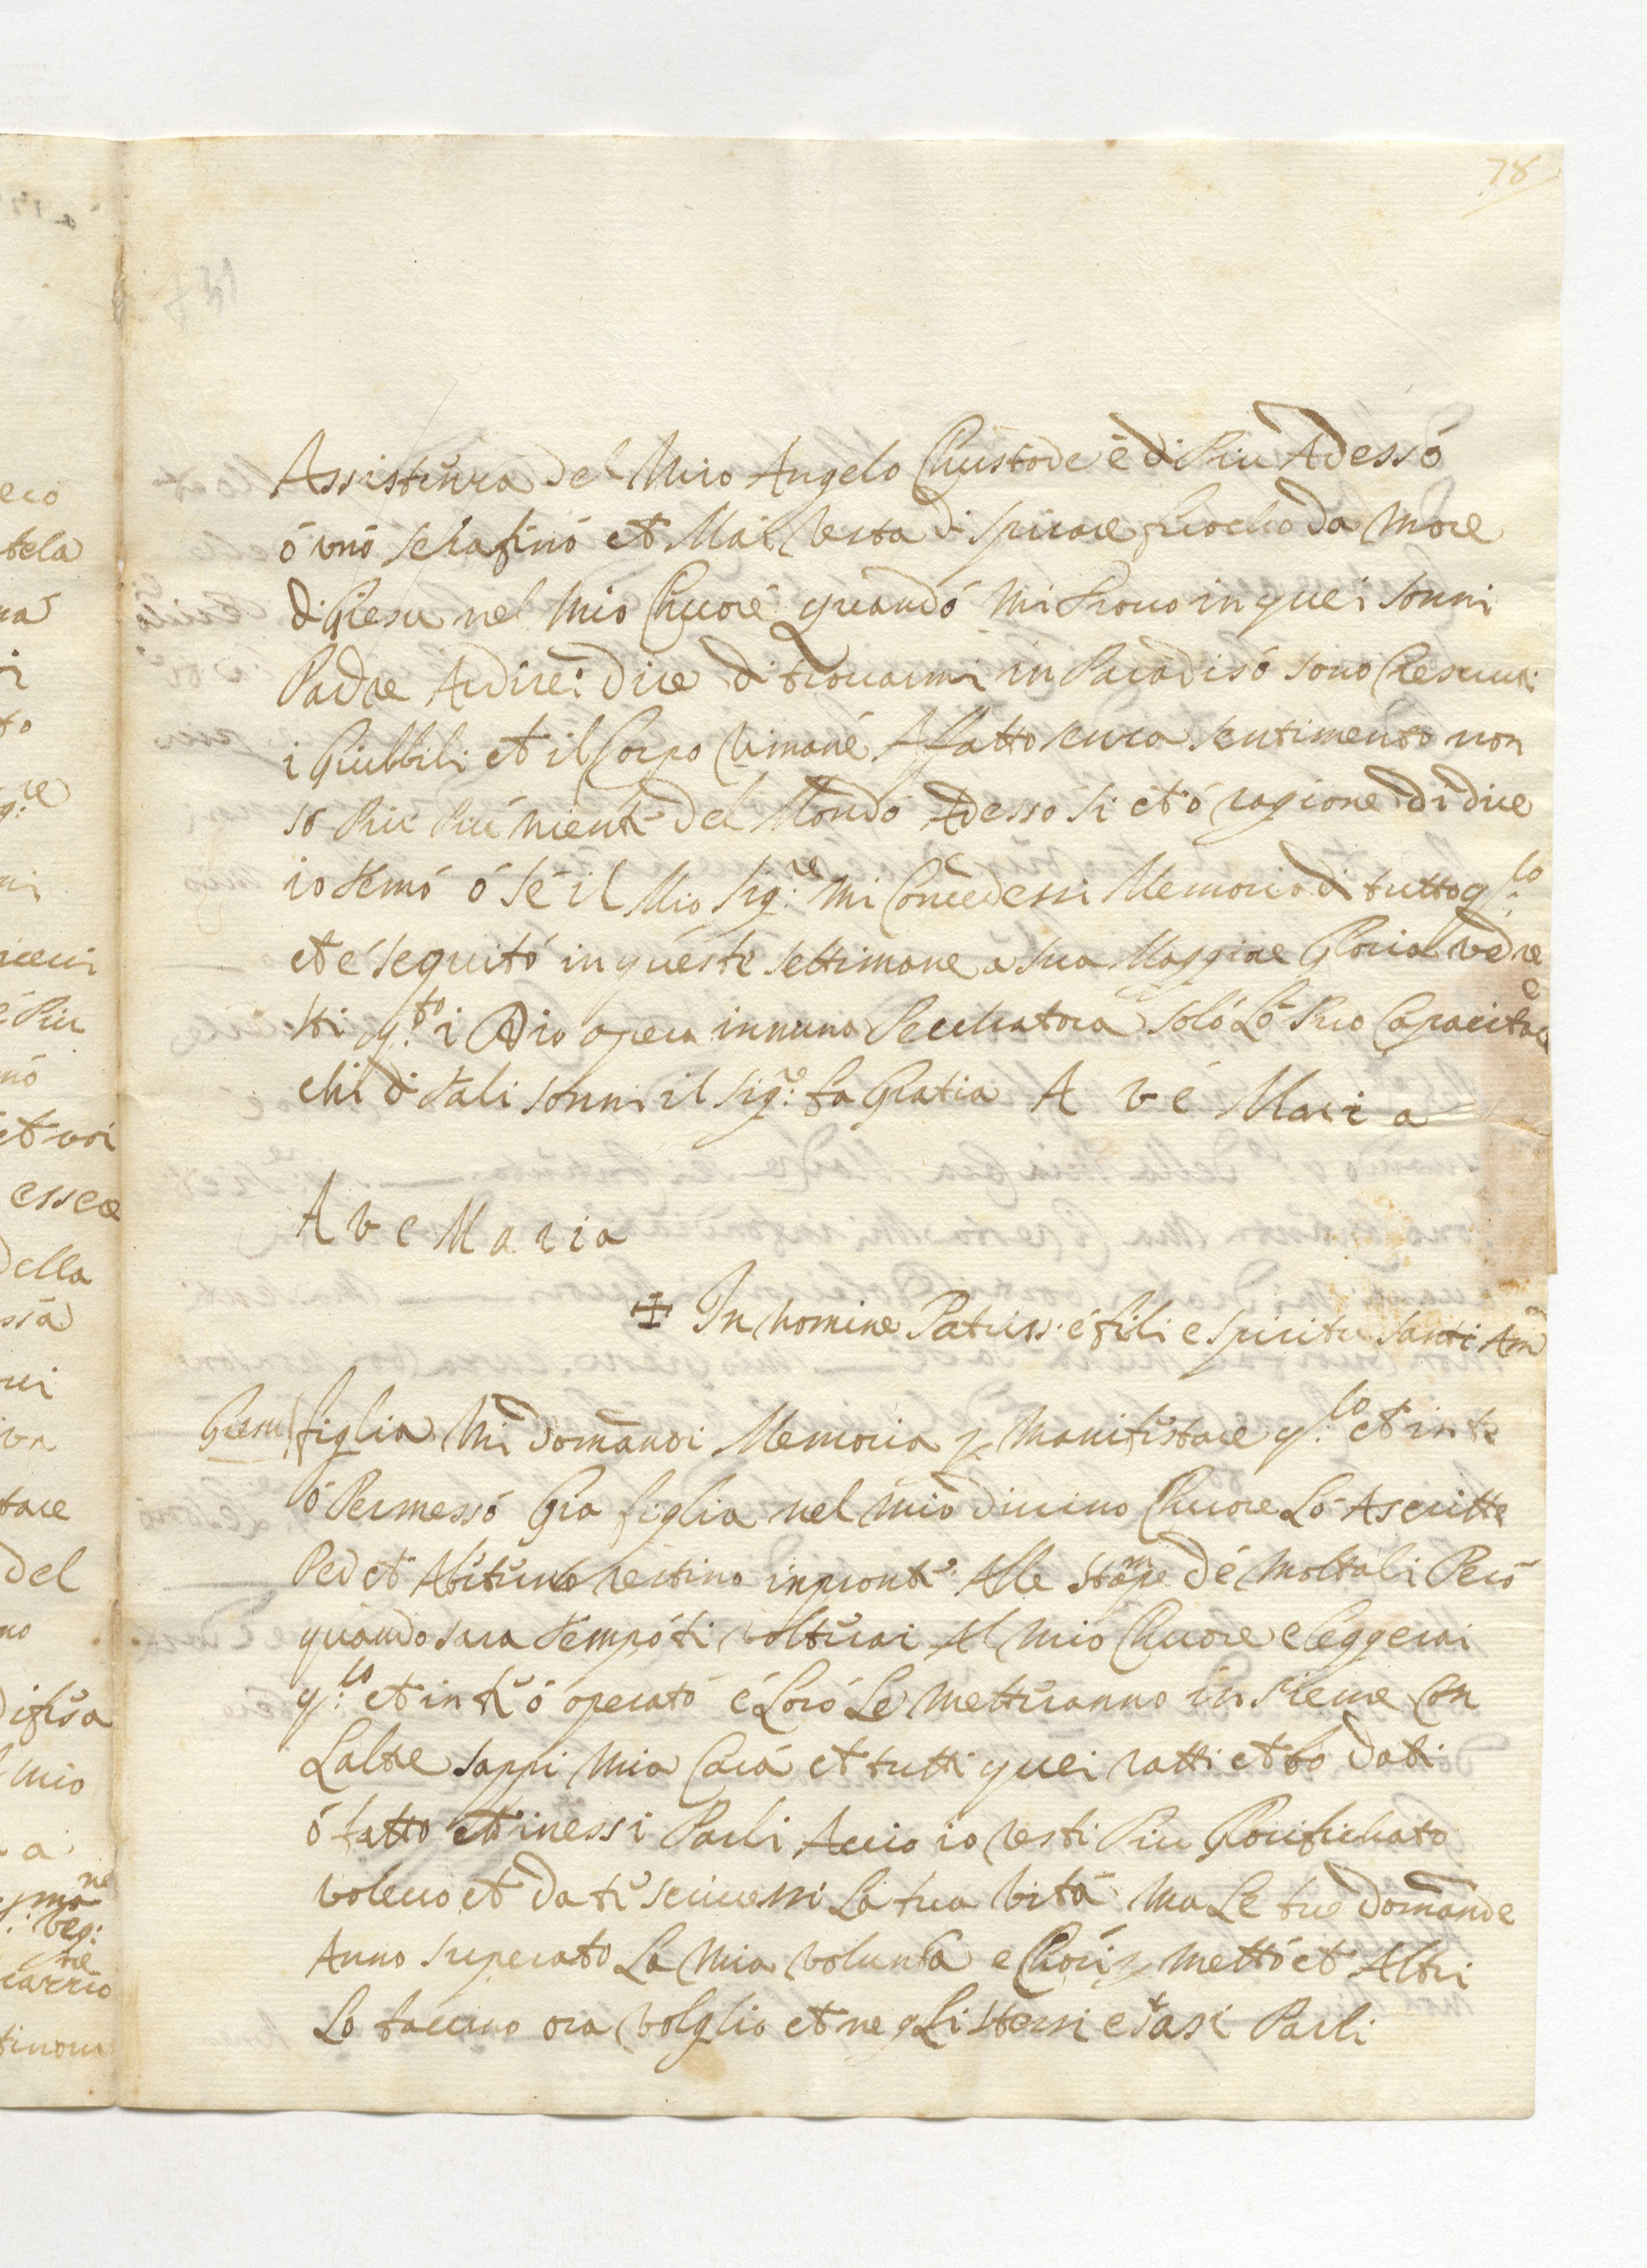 78
Assistenza del Mio Angelo Chustode é di Piu Adessó
ó unó serafinó et Mai resta di spirare fuocho da more
di Giesu nel Mio Chuoré quandó Mi Trovo in quei sonni
Padre Ardirei dire di trovarmi in Paradisó sono Cresciuti
i Giubbili et il Corpo rimané Affatto senza sentimento non
so Piu Piu niente del Mondó Adesso si et ó ragione di dire
io temó ó sé il Mio Sig:re Mi Concedessi Memoria di tutto q:lo
et é seguitó in questé settimane a sua Maggiore Gloria vedre
ti q:to i Dio opera in nuna Pecchatora soló Ló Puo Capacitare
chi di tali sonni il sig:re fa Gratia A v é Mari a
A v e M a r i a
✠ In nomine Patris é fili e spiritu santi Am
Giesu figlia Mi domandi Memoria p Manifestare q:lo et in te
ó Permessó Gia figlia nel Mio divino Chuore Lo Ascritte
Per et Abiterno restino inpronte Alle Stampe dé Moltali Peró
quando sara tempó ti volterai Al Mio Chuore e leggerai
q:lo et in te ó operató é Loró Le Metteranno in sieme Con
Laltre sappi Mia Cará et tutti quei ratti et to dati
ó fatto et in essi Parli Accio io resti Piu Grorifichato
volevo et da te scrivessi La tua vitá Ma Le tue domande
Anno superato La Mia volunta e Chosi p mettó et Altri
Lo faccino ora volglio et ne gLi stessi estasi Parli